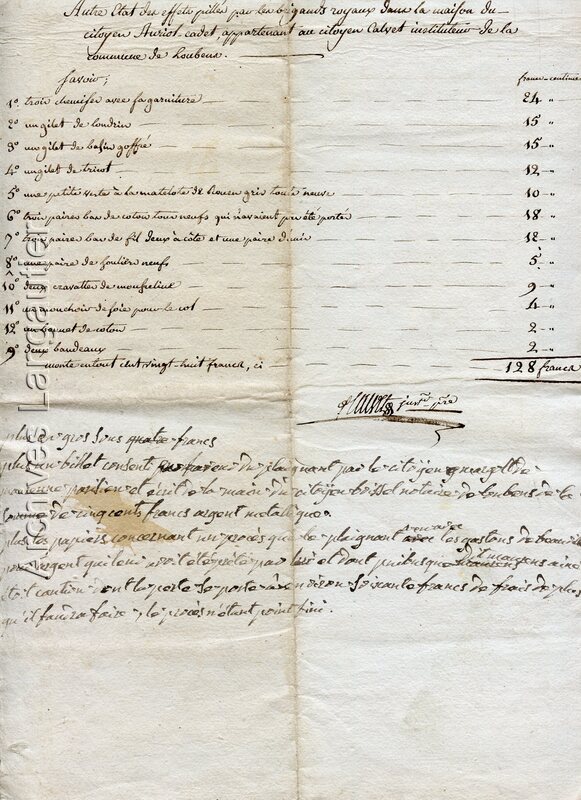 Autre Etat des effets pillés par les brigands royaux dans la maison du
citoyen Auriol cadet, appartenant au citoyen Calvet instituteur de la
commune de Loubens.
Savoir;
francs - centimes
1º trois chemises avec sa garniture 24 "
2º un gilet de londrin 15 "
3º un gilet de basin goffré 15 "
4º un gilet de tricot 12 "
5º une petite veste à la matelote de Rouen gris toute neuve 10 "
6º trois paires bas de coton tous neufs qui n'avaient pas été portés 18 "
7º trois paires bas de fil deux à côte et une paire d'unis 12 "
8º une paire de souliers neufs 5 "
10º deux cravattes de mousseline 9 "
11º un mouchoir de soie pour le col 4 "
12º un bonnet de coton 2 "
9º deux bandeaux 2 "
monte en tout cent vingt-huit francs, ci 128 francs
Calvet
plus en gros sous quatre francs
plus un billet consenti en faveur du plaignant par le citoyen
et écrit de la main du citoyen notaire de Loubens de la
somme de cinquante francs argent metallique.
plus les papiers concernant un procès que le plaignant avec les gastons de
pour argent qui leur avoit été prété par lui et dont
étoit caution dont la perte se porte à environ soixante francs de frais de plus
qu'il faudra faire, le procès n'étant point fini.
Archives Largautier